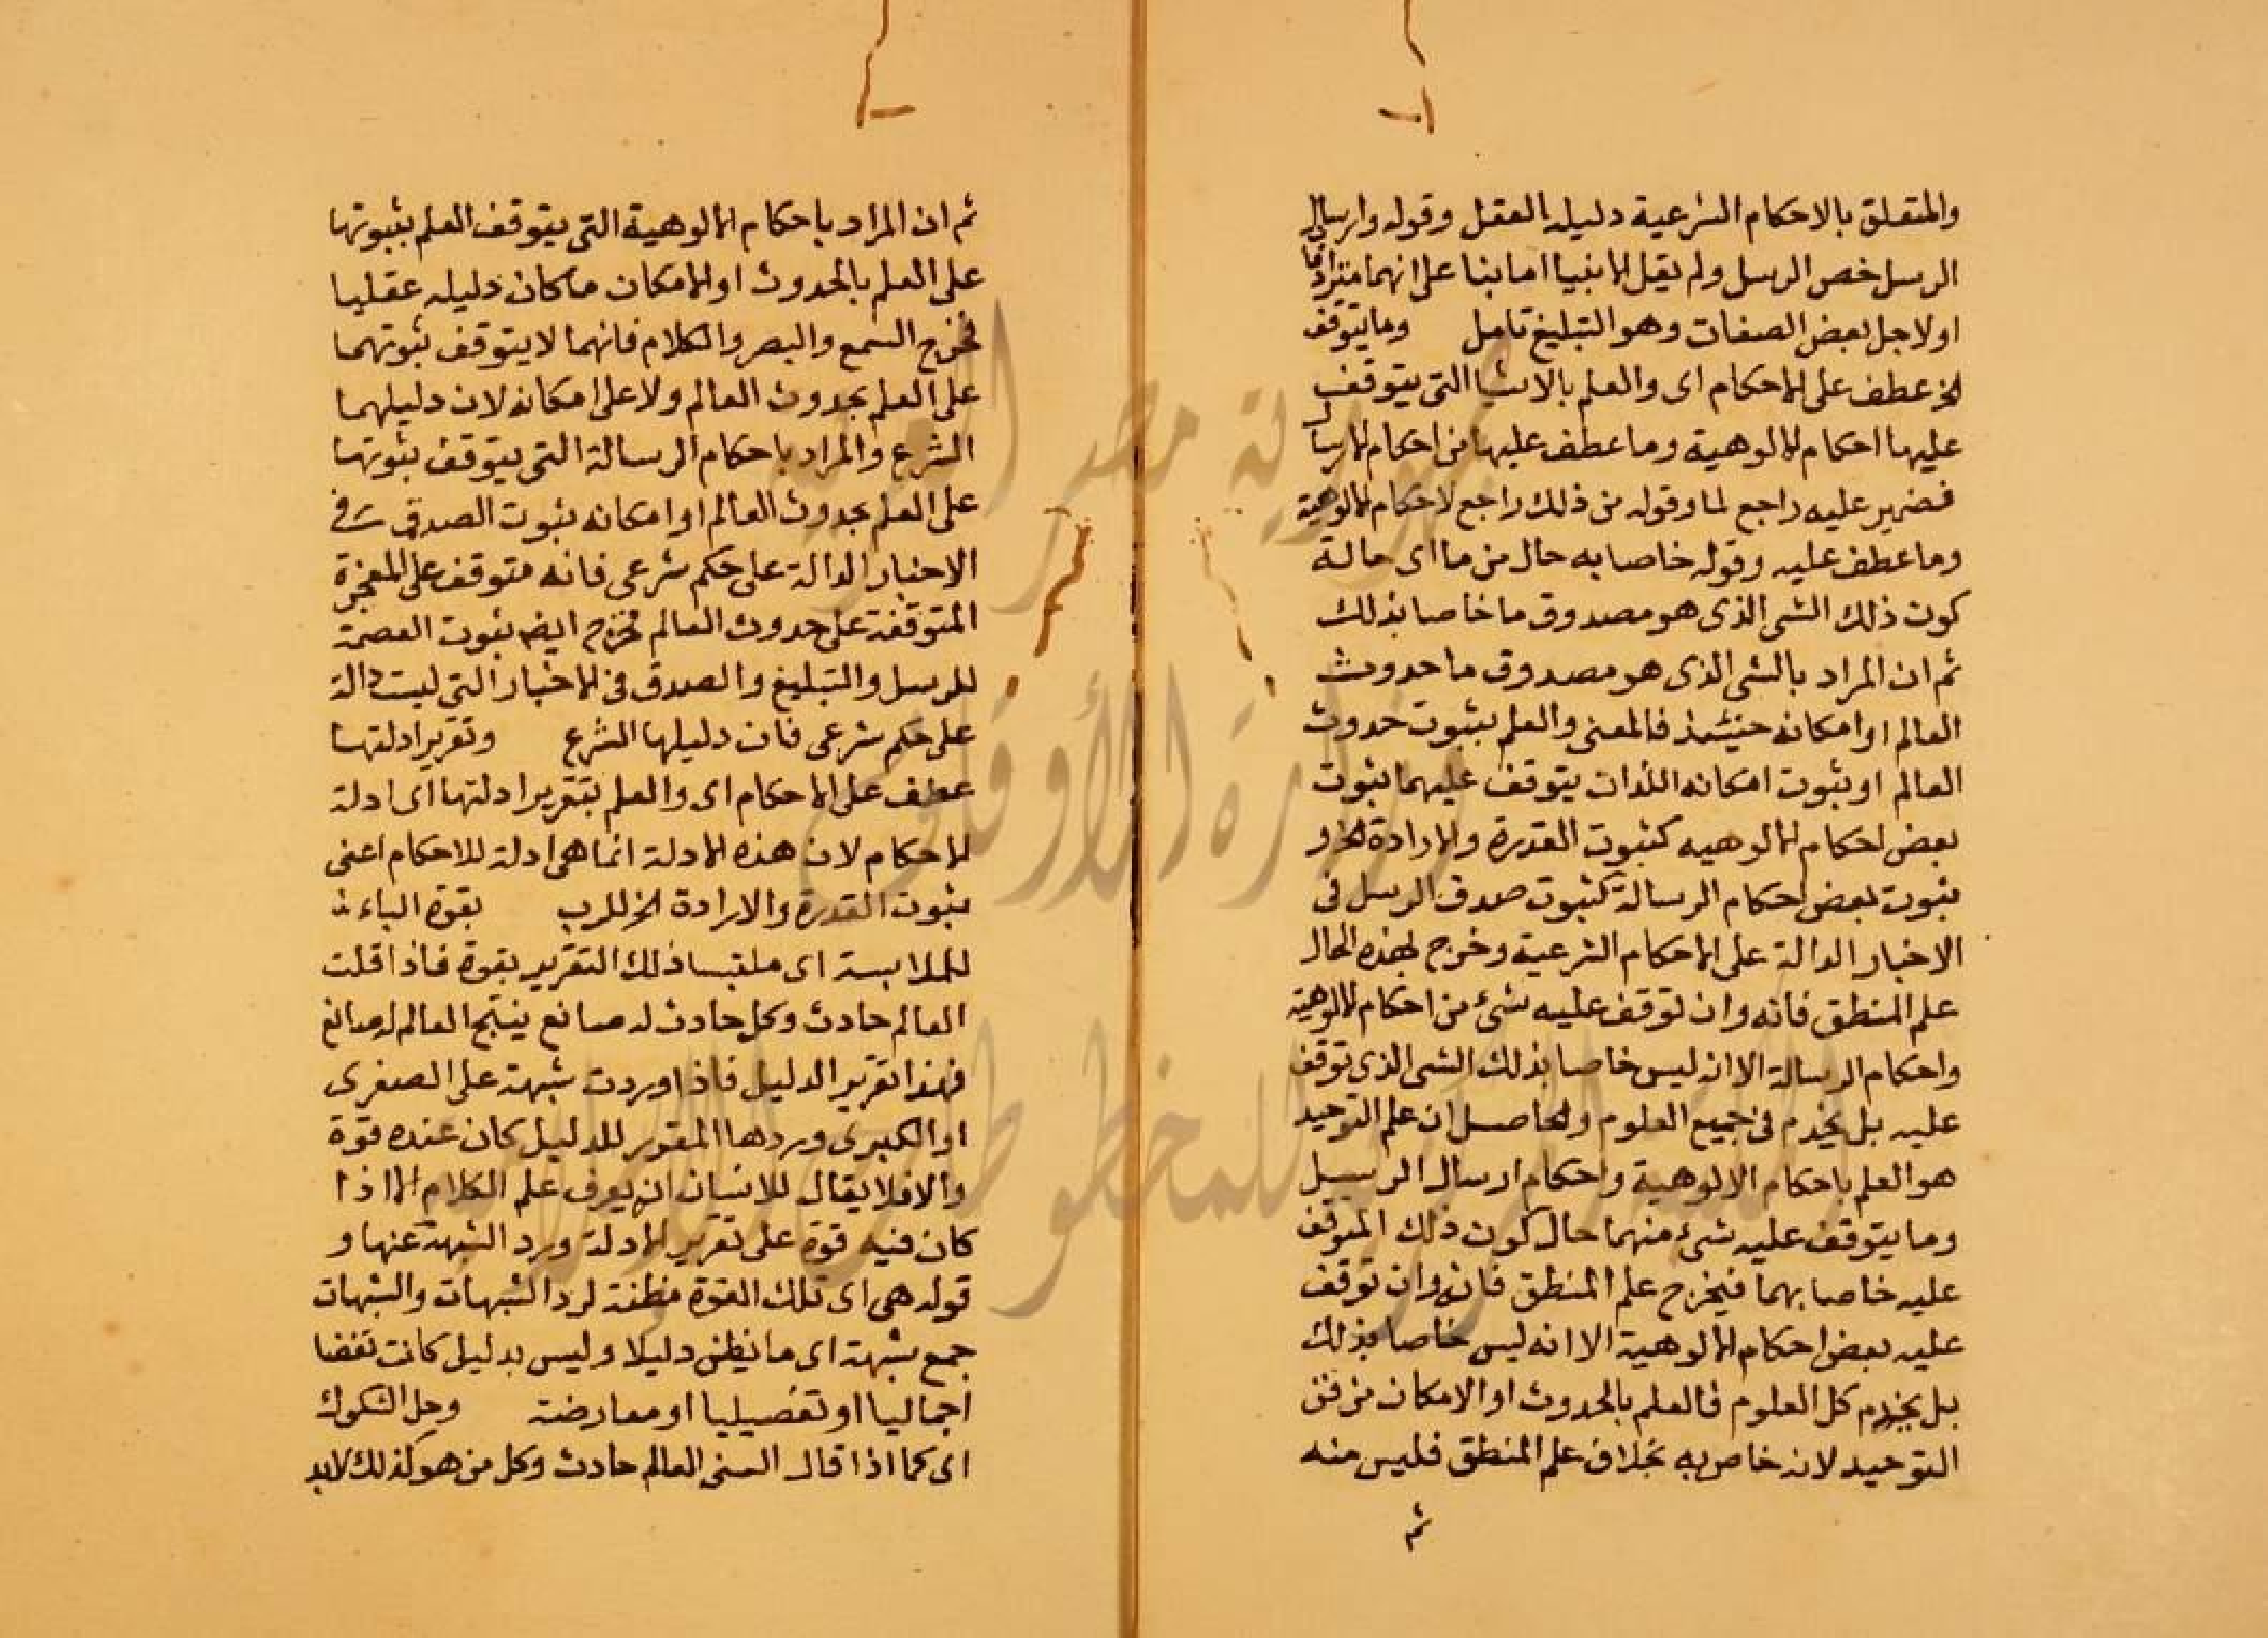 والمتعلق بالاحكام الشرعية دليله العقل وقوله وارسال
الرسل خص الرسل ولم يقل الانبيا اما بنا على انهما مترادفا
اولاجل بعض الصفات وهو التبليغ تامل وما يتوقف
الخ عطف على الاحكام اى والعلم بالاشيا التى يتوقف
عليها احكام الالوهية وما عطف عليها من احكام الارسال
فضمير عليه راجع لما وقوله من ذلك راجع لاحكام الالوهية
وما عطف عليه وقوله خاصا به حال من ما اى حالة
كون ذلك الشى الذى هو مصدوق ما خاصا بذلك
ثم ان المراد بالشى الذى هو مصدوق ما حدوث
العالم او امكانه حينئذ فالمعنى والعلم بثبوت حدوث
العالم او بثبوت امكانه اللذان يتوقف عليهما ثبوت
بعض احكام الالوهيه كثبوت القدرة والارادة الخ و
ثبوت بعض احكام الرسالة كثبوت صدق الرسل فى
الاخبار الدالة على الاحكام الشرعية وخرج بهذه الحال
علم المنطق فانه وان توقف عليه شئ من احكام الالوهية
واحكام الرسالة الا انه ليس خاصا بذلك الشى الذى توقف
عليه بل يخدم فى جميع العلوم والحاصل ان علم التوحيد
هو العلم باحكام الالوهية واحكام ارسال الرسل
وما يتوقف عليه شئ منهما حال كون ذلك المتوقف
عليه خاصا بهما فيخرج علم المنطق فانه وان توقف
عليه بعض احكام الالوهية الا انه ليس خاصا بذلك
بل يخدم كل العلوم فالعلم بالحدوث او الامكان من فن
التوحيد لانه خاص به بخلاف علم المنطق فليس منه
ثم
ثم ان المراد باحكام الالوهية التى يتوقف العلم بثبوتها
على العلم بالحدوث او الامكان ما كان دليله عقليا
فخرج السمع والبصر والكلام فانهما لا يتوقف ثبوتهما
على العلم بحدوث العالم ولا على امكانه لان دليلهما
الشرع والمراد باحكام الرسالة التى يتوقف ثبوتها
على العلم بحدوث العالم او امكانه ثبوت الصدق فى
الاخبار الدالة على حكم شرعى فانه متوقف على المعجزة
المتوقفة على حدوث العالم فخرج ايضا ثبوت العصمة
للرسل والتبليغ والصدق فى الاخبار التى ليست دالة
على حكم شرعى فان دليلها الشرع وتقرير ادلتها
عطف على الاحكام اى والعلم بتقرير ادلتها اى ادلة
الاحكام لان هذه الادلة انما هى ادلة للاحكام اعنى
ثبوت القدرة والارادة الخ للرب بقوة الباء
للملابسة اى ملتبسا ذلك التقرير بقوة فاذا قلت
العالم حادث وكل حادث له صانع ينتج العالم له صانع
فهذا تقرير الدليل فاذا اوردت شبهة على الصغرى
او الكبرى وردها المقرر للدليل كان عنده قوة
والا فلا يقال للانسان انه يعرف علم الكلام الا اذا
كان فيه قوة على تقرير الادلة ورد الشبهة عنها و
قوله هى اى تلك القوة مظنة لرد الشبهات والشبهات
جمع شبهة اى ما يظن دليلا وليس بدليل كانت نقضا
اجماليا او تفصيليا او معارضة وحل الشكوك
اى كما اذا قال السنى العالم حادث وكل من هو كذلك لابد